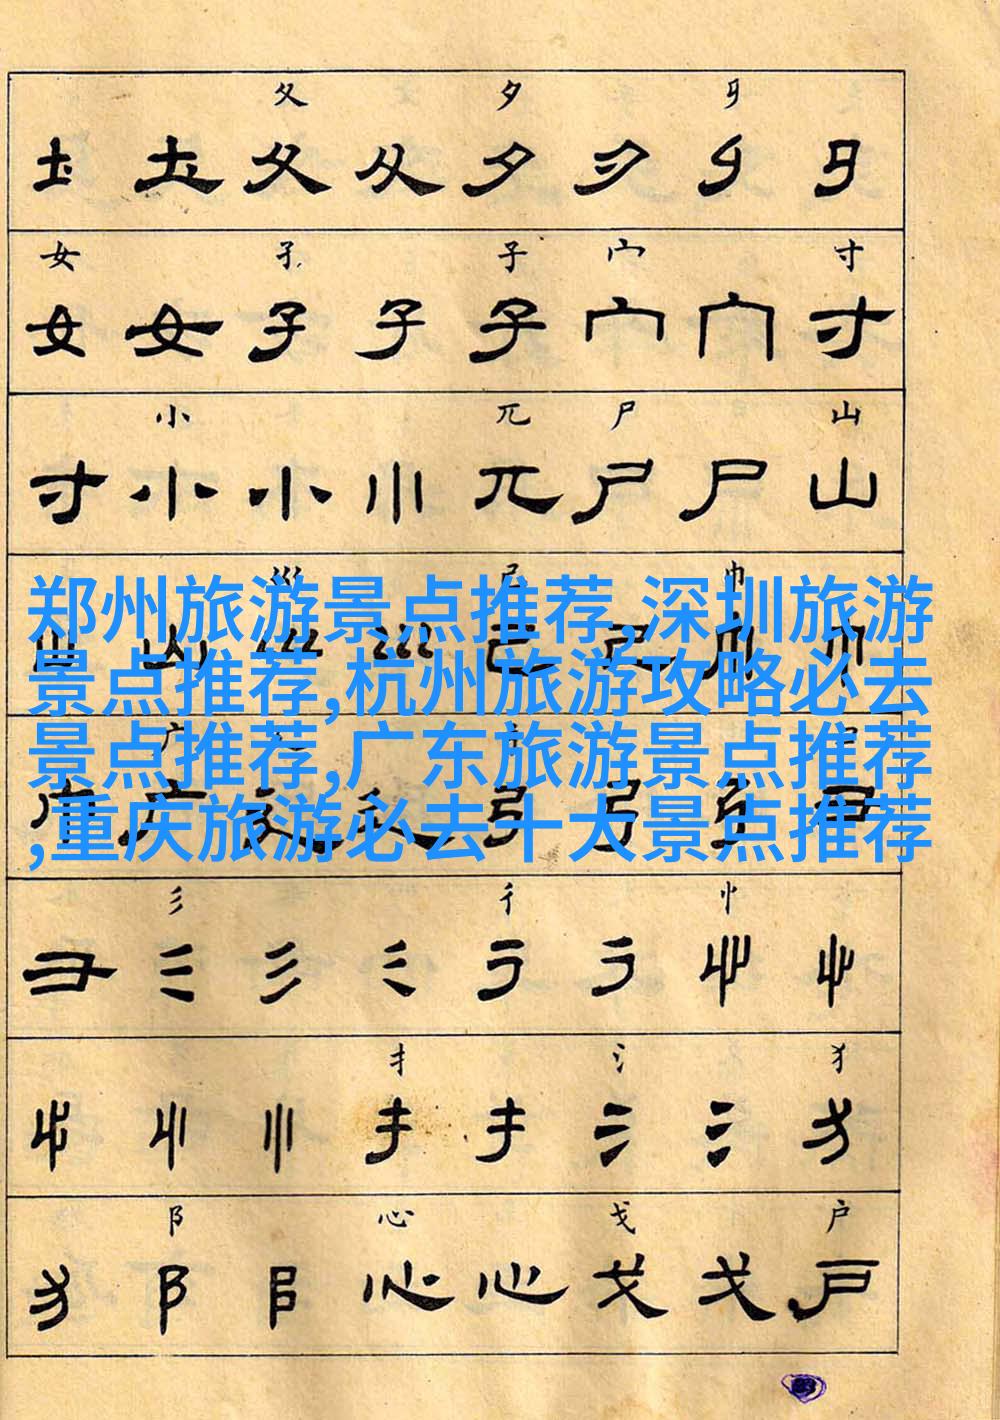 夂 夕 㐄
土 土 夂 夂 夕 夕 㐄 㐄
女 孑 子 宀 寸
女 女 子 子 子 宀 宀 寸
小 兀 尸 山
寸 小 小 小 兀 尸 尸 山
巛 己 巾
山 山 巛 巛 己 己 巾 巾
郑州旅游景点推荐,深圳旅游
景点推荐,杭州旅游攻略必去
景点推荐,广东旅游景点推荐
,重庆旅游必去十大景点推荐
广
广 广 廴 廴 弓 弓
彡 彳 忄
彐 彡 彡 彡 彳 彳 忄 忄
扌 氵 犭
忄 忄 忄 扌 扌 氵 氵 犭
阝 心 戈 户
犭 阝 阝 心 心 戈 戈 户